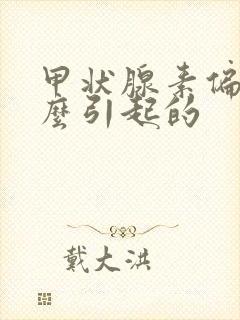 甲状腺素偏
麼引起的
戴大洪